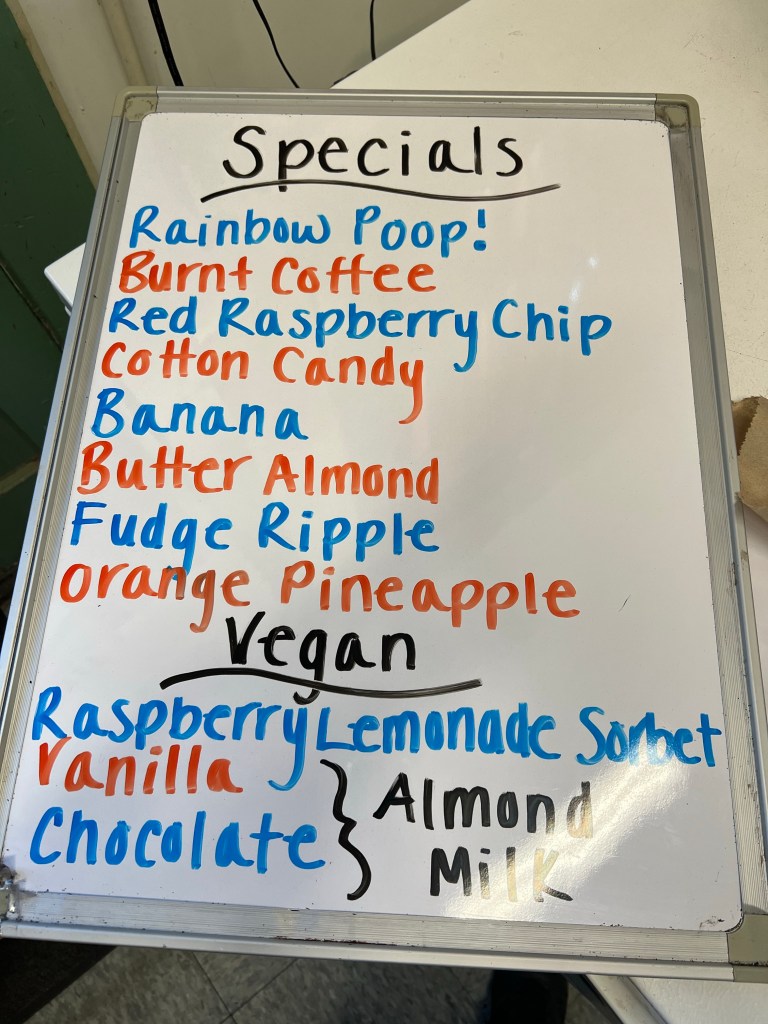 Specials
Rainbow Poop!
Burnt Coffee
Red Raspberry Chip
Cotton Candy
Banana
Butter Almond
Fudge Ripple
Orange Pineapple
Vegan
Raspberry Lemonade Sorbet
Vanilla
Chocolate
} Almond
Milk